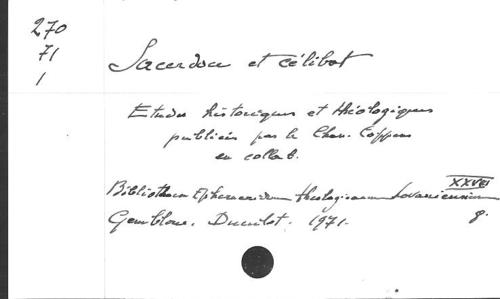 270
71
1
Sacerdoce et célibat
Etudes historiques et théologiques
publiées par le Chan. Coppens
en collab.
XXVIII
Bibliotheca Ephemeridum theologicarum Lovaniensium
Gembloux. Duculot. 1971. 8.